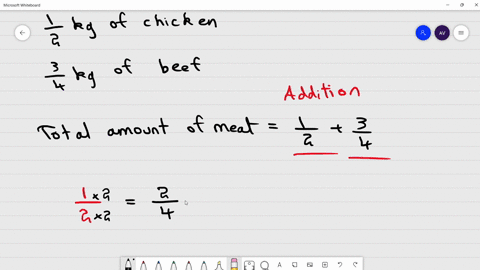 Microsoft Whiteboard
1/2 kg of chicken
AV
3/4 kg of beef
Addition
Total amount of meat = 1/2 + 3/4
1×2/2×2 = 2/4